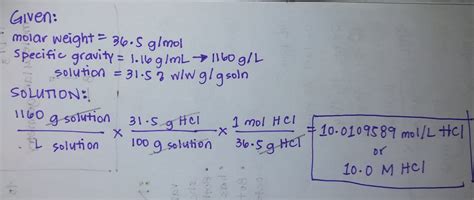 Given:
molar weight = 36.5 g/mol
specific gravity = 1.16 g/mL → 1160 g/L
solution = 31.5 % w/w g/g soln
SOLUTION:
1160 g solution / L solution × 31.5 g HCl / 100 g solution × 1 mol HCl / 36.5 g HCl = 10.0109589 mol/L HCl
or
10.0 M HCl